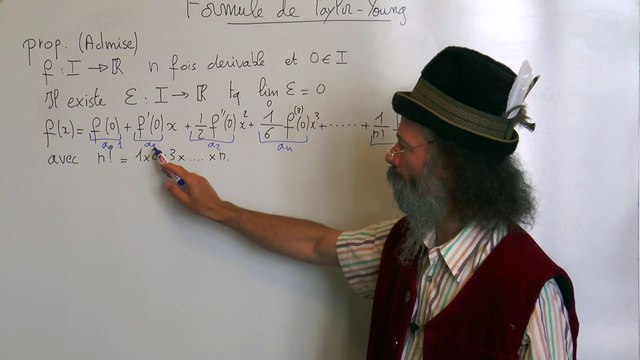 Formule de Taylor-Young
prop. (Admise)
f : I → ℝ n fois derivable et 0 ∈ I
Il existe Ɛ : I → ℝ tq lim Ɛ = 0
0
f(x) = f(0) + f'(0) x + 1/2 f''(0) x² + 1/6 f⁽³⁾(0) x³ + ...... + 1/n!
avec n! = 1x2x3x....xn.